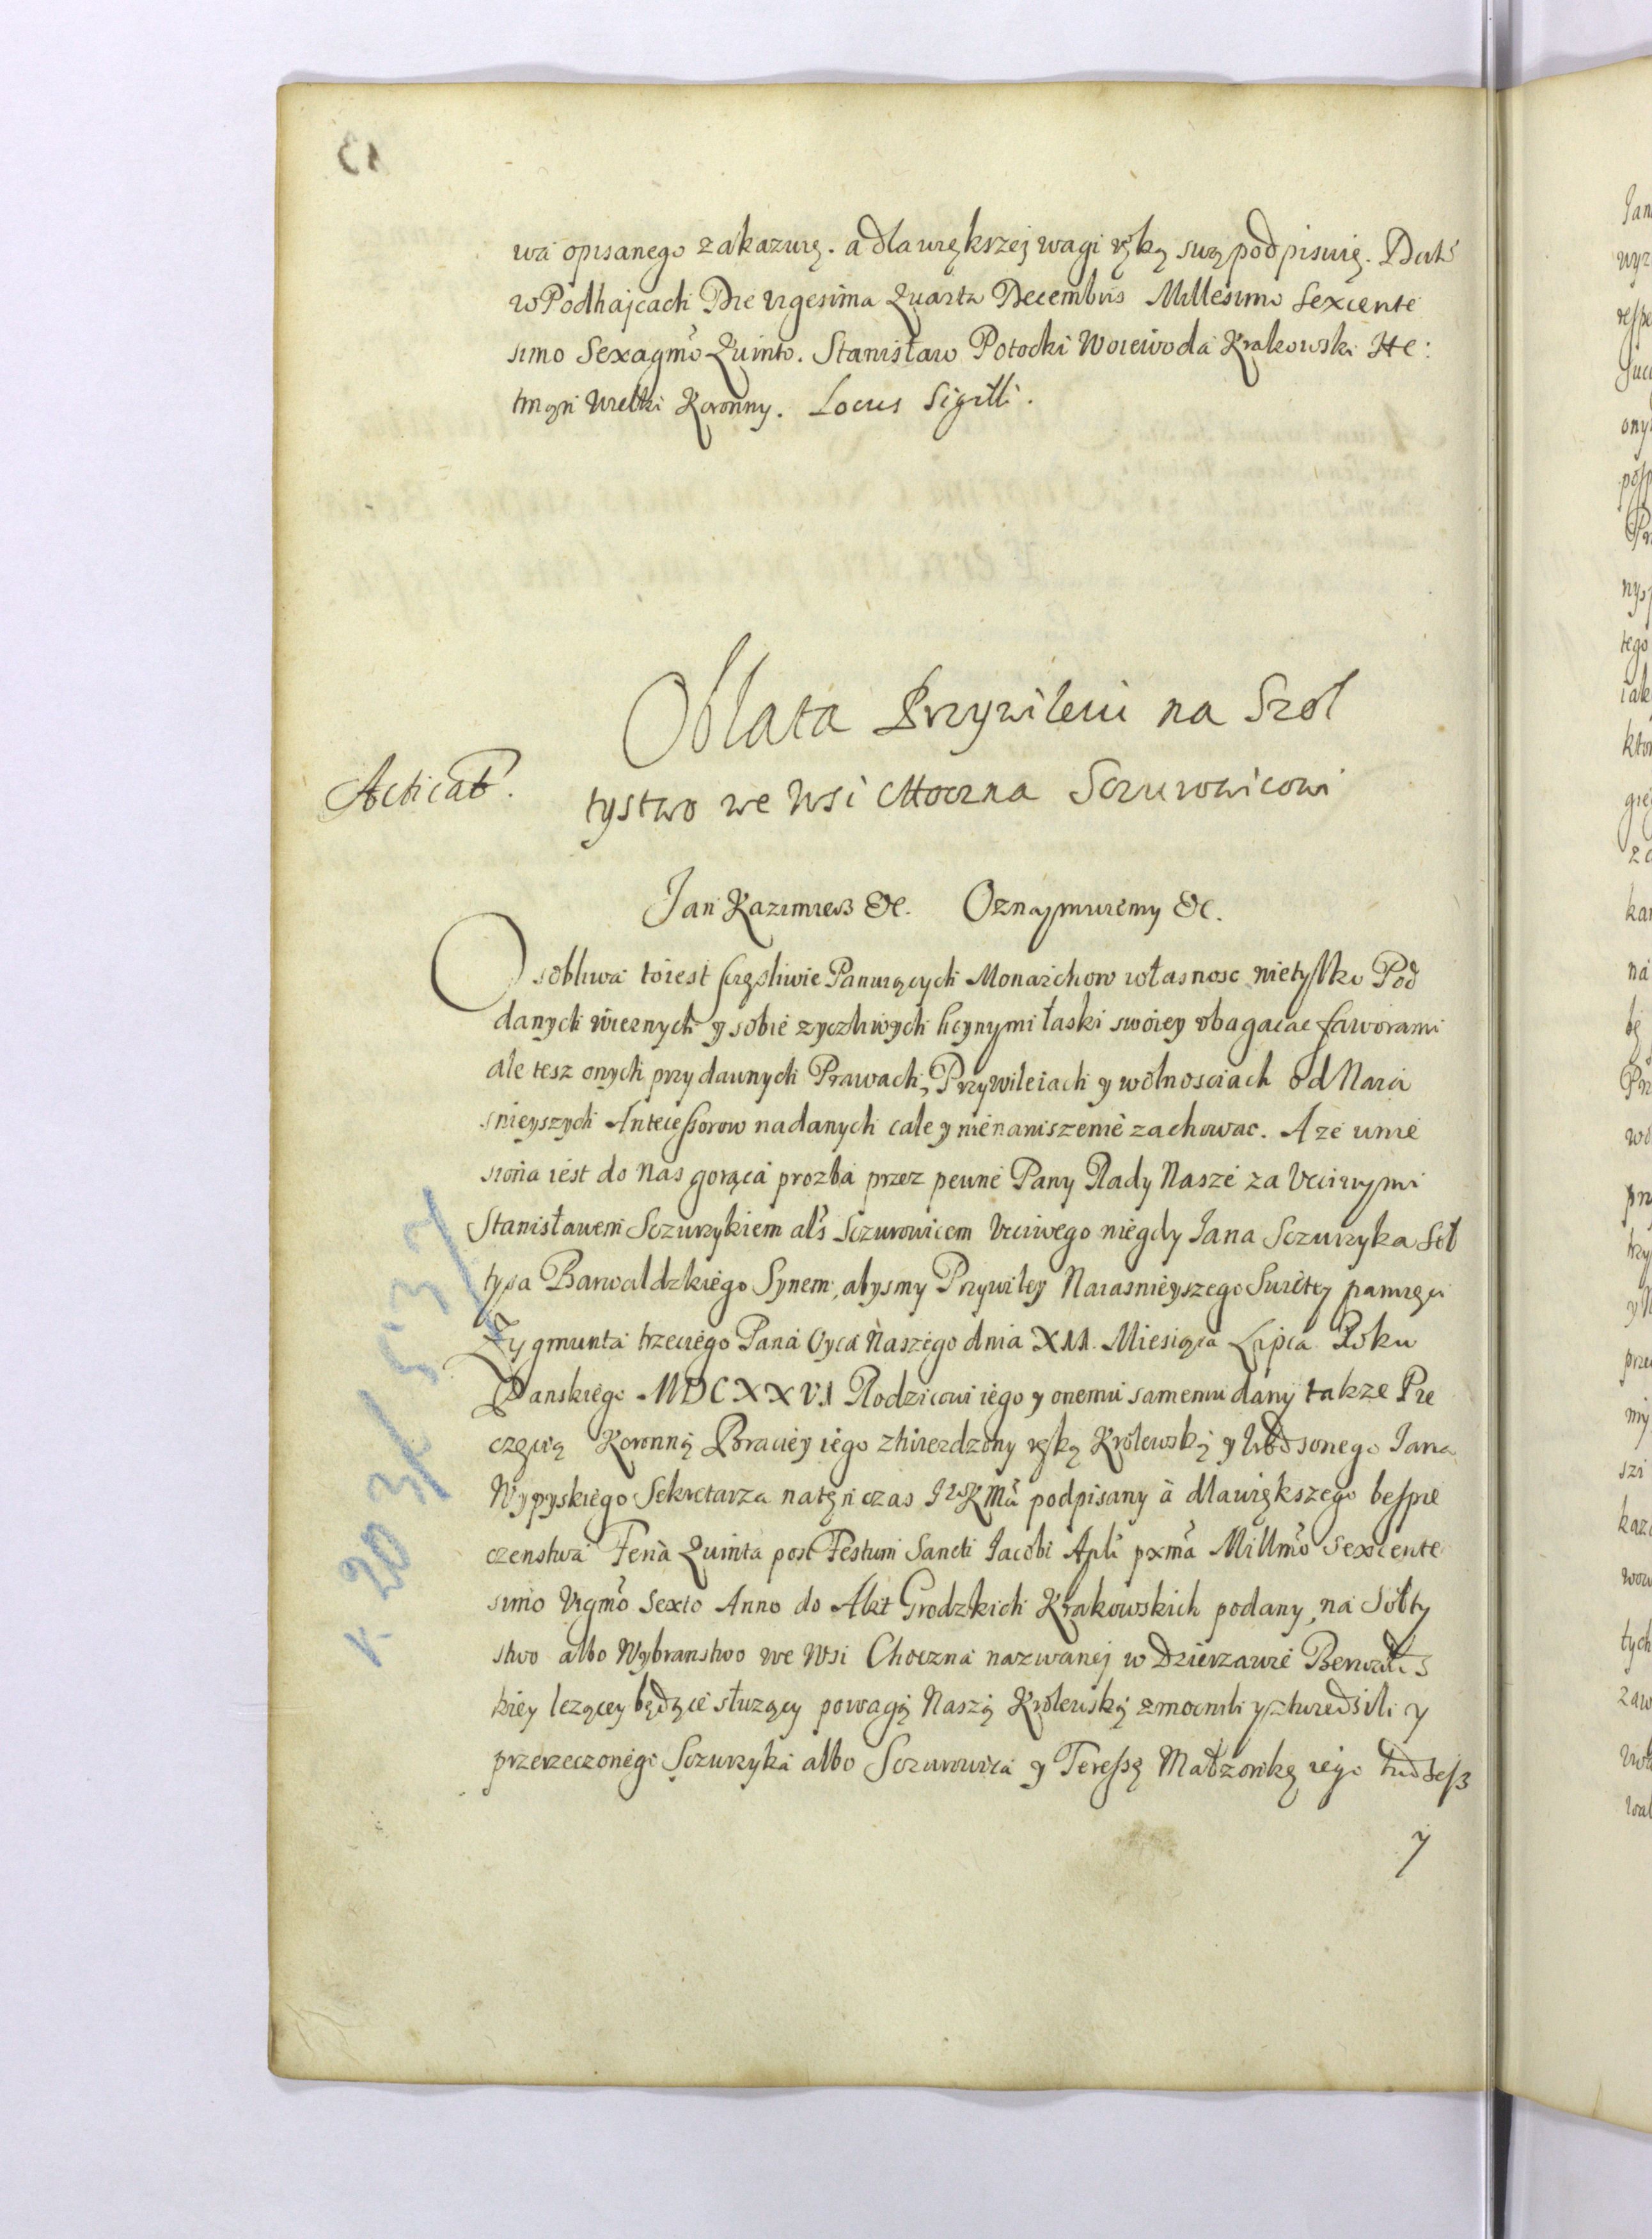 wa opisanego zakazuię. a dla większej wagi ręką swą podpisuię. Dat
w Podhajcach Die Vigesima Quarta Decembris Millesimo Sexcente
simo Sexagmo Quinto. Stanisław Potocki Woiewoda Krakowski He:
tman Wielki Koronny. Locus Sigilli.
Oblata Przywileiu na Szoł
Acticat.
tystwo we Wsi Choczna Sczurowicowi
Jan Kazimierz &c. Oznajmuiemy &c.
Osobliwa to iest sczęsliwie Panuiących Monarchow własnosc nietylko Pod
danych wiernych y sobie zyczliwych licznymi łaski swoiey obagacac faworami
ale tesz onych przy dawnych Prawach, Przywileiach y wolnosciach od Naia
snieyszych Antecessorow nadanych cale y nienaruszenie zachowac. A ze unie
siona iest do Nas gorąca prozba przez pewne Pany Rady Nasze za Vcciwymi
Stanisławem Sczurzykiem als Sczurowicem Vcciwego niegdy Jana Sczurzyka Soł
tysa Barwaldzkiego Synem, abysmy Przywiley Naiasnieyszego Swiętey pamięci
Zygmunta trzeciego Pana Oyca Naszego dnia XVI. Miesiąca Lipca Roku
Panskiego MDCXXVI Rodzicowi iego y onemu samemu dany takze Pie
częcią Koronną Braciey iego ztwierdzony ręką Krolewską y Vrodzonego Jana
Wypyskiego Sekretarza natęn czas JKMci podpisany a dla większego bespie
czenstwa Feria Quinta post Festum Sancti Jacobi Apli pxma Millmo Sexcente
simo Vigmo Sexto Anno do Akt Grodzkich Krakowskich podany, na Sołty
stwo albo Wybranstwo we Wsi Choczna nazwanej w Dzierzawie
kiey lezącey będące słuzący powagą Naszą Krolewską zmocnili y ztwierdzili y
przerzeczonego Sczurzyka albo Sczurowica y Teressę Małzonkę iego tudziesz
y
k 203/ 537